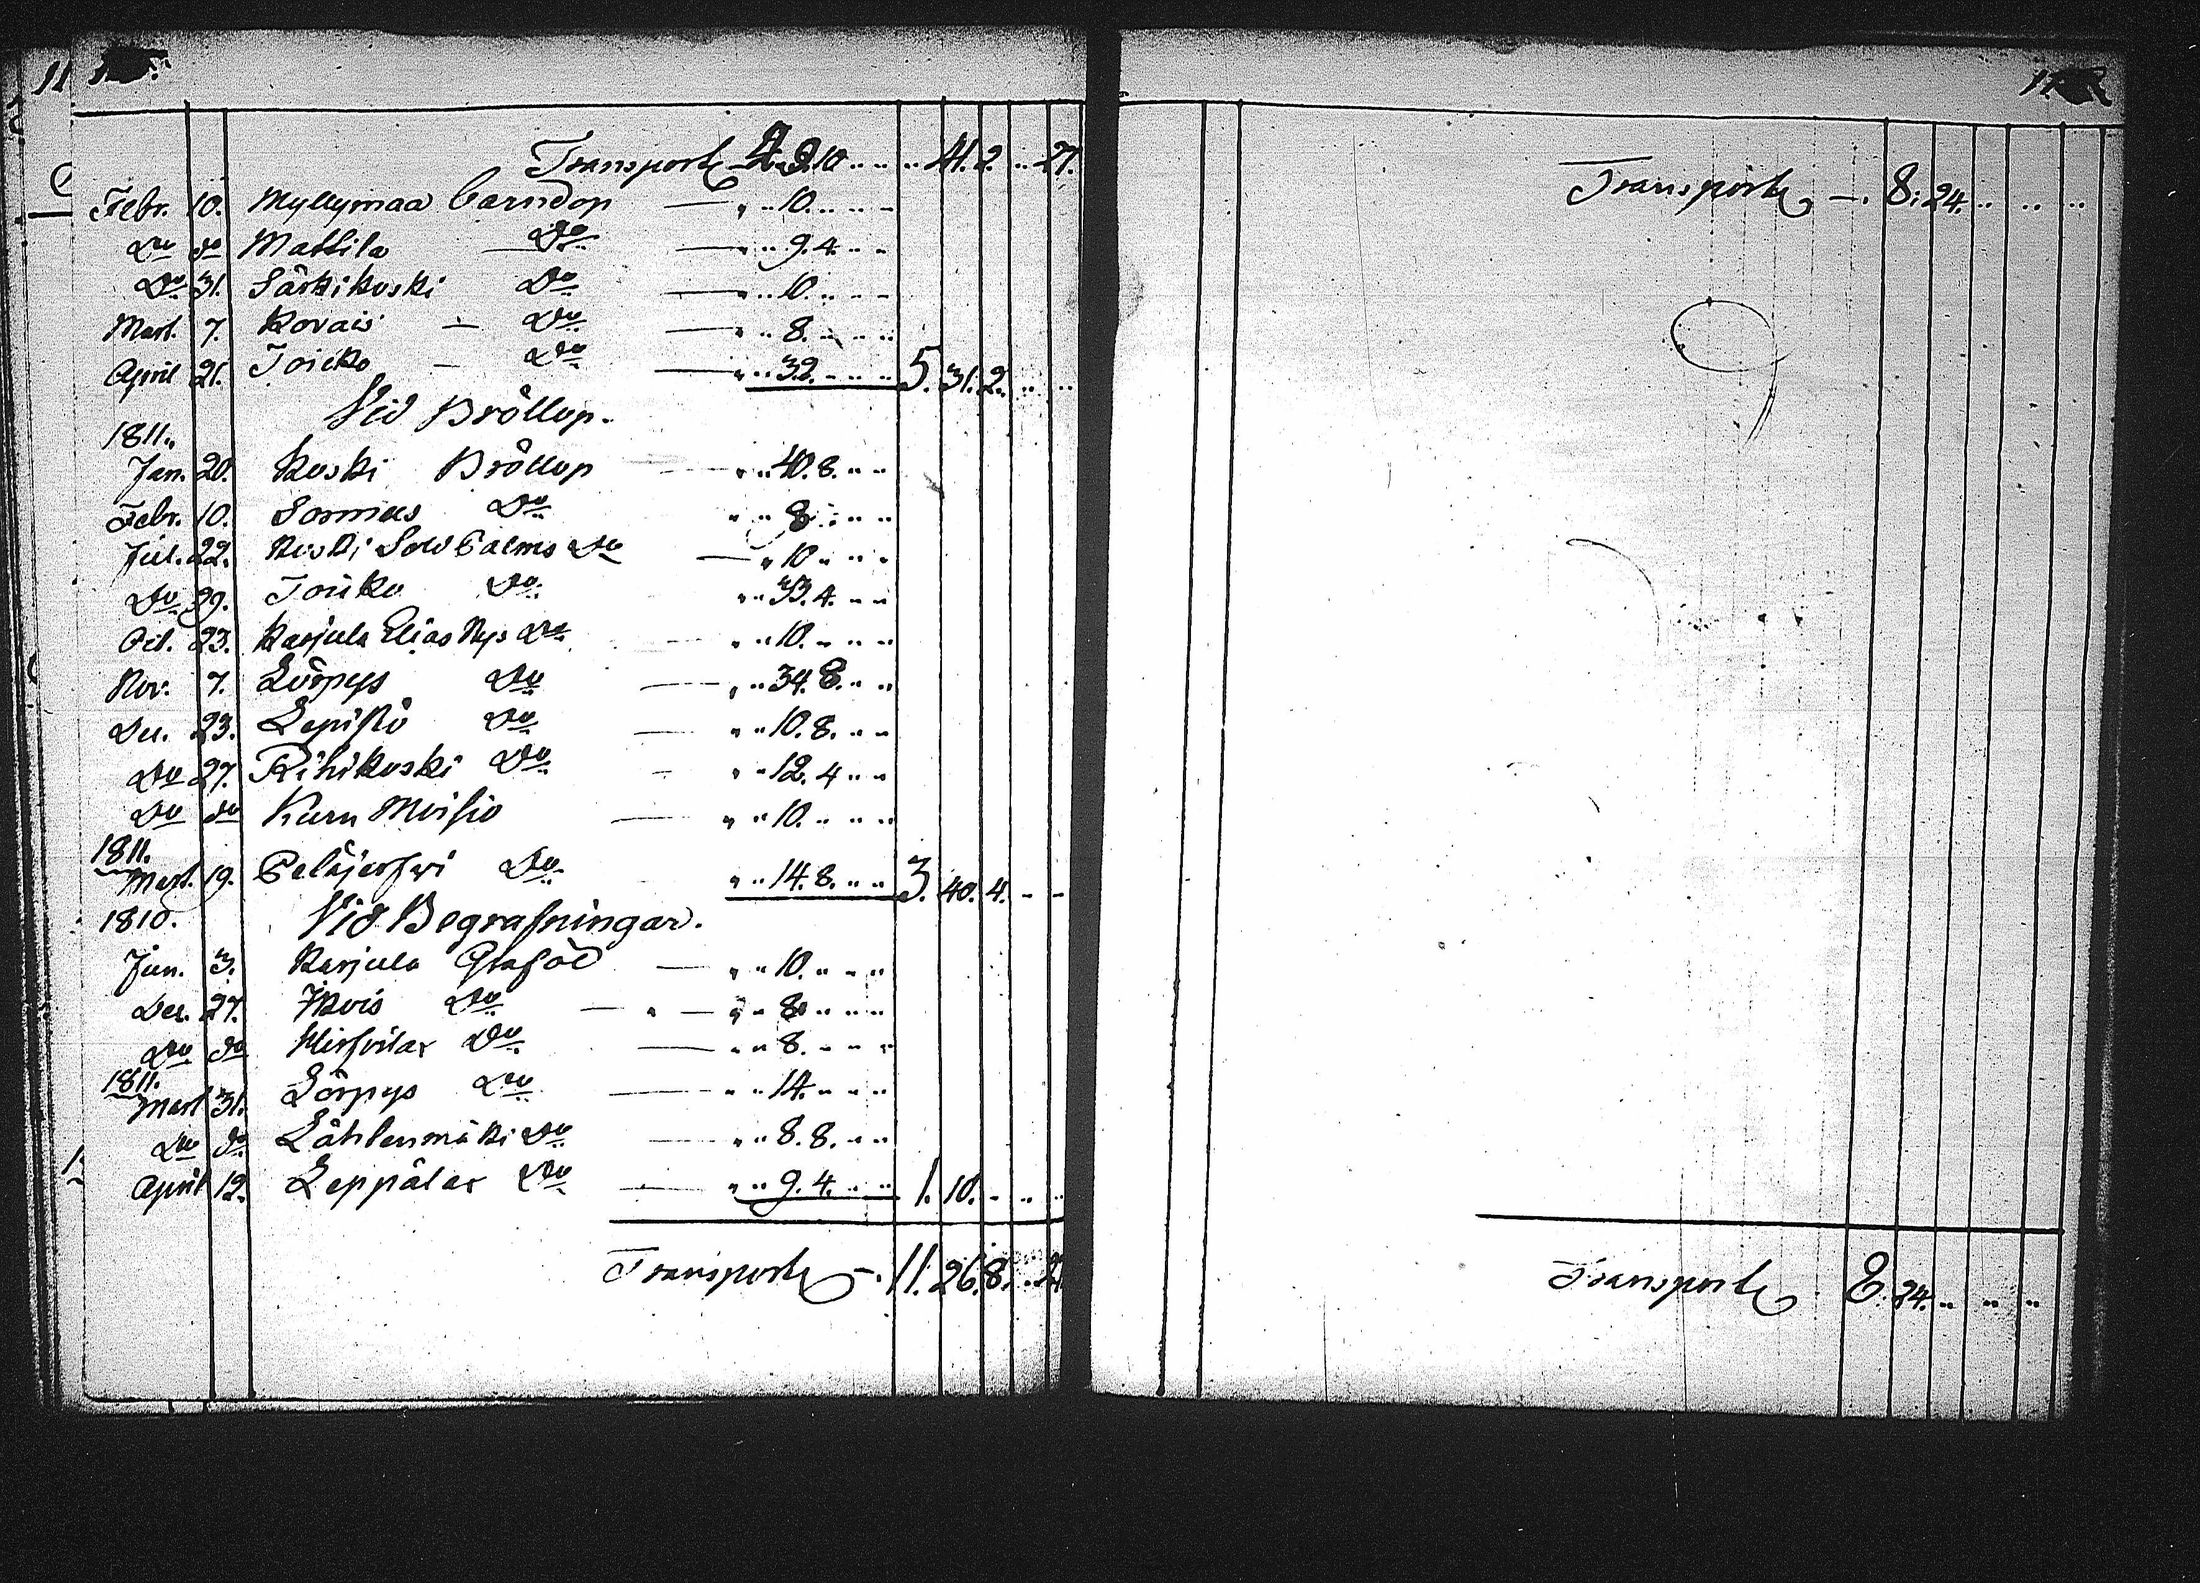 Transport 4. 9. 10 .. .. .. 41. 2. .. 27.
Febr. 10. Myllymaa Barndop — " .. 10. .. .. ..
Do do Mattila — Do — " .. 9. 4. .. ..
Do 31. Särkikoski Do — " .. 10. .. .. ..
Mart. 7. Kovais — Do — " .. 8. .. .. ..
April 21. Joicko — Do — " .. 32. .. .. .. 5. 31. 2. .. ..
Vid Bröllop.
1811.
Jan. 20. Koski Bröllop — " .. 40. 8. .. ..
Febr. 10. Sormus Do " .. 8. .. .. ..
Jul. 22. Koski Sold Palms Do — " 10 .. .. ..
Do 29. Joicko Do " .. 33. 4. .. ..
Oct. 23. Karjula Elias Nys Do — " .. 10. .. .. ..
Nov. 7. Lörpys Do — " .. 34. 8. .. ..
Dec. 23. Lepistö Do — " .. 10. 8. .. ..
Do 27. Rihikoski Do — " .. 12. 4 .. ..
Do do Karn Moisio — " .. 10. .. .. ..
1811.
Mart. 19. Peläjerfwi Do " .. 14. 8. .. .. 3. 40. 4. - -
1810. Vid Begrafningar.
Jun. 3. Karjula Grafööl — " .. 10. .. .. ..
Dec. 27. Do — " — " .. 8 .. .. ..
Do do Hirfvilax Do — " .. 8. .. .. ..
1811.
Mart 31. Lörpys Do — " .. 14. .. .. ..
Do do Lähteenmäki Do — " .. 8. 8. .. ..
April 12. Leppälax Do — " .. 9. 4. .. .. 1. 10. - .. ..
Transport — . 11. 26. 8. ..
Transport — . 8. 24. .. .. ..
Transport 8. 24. .. .. ..